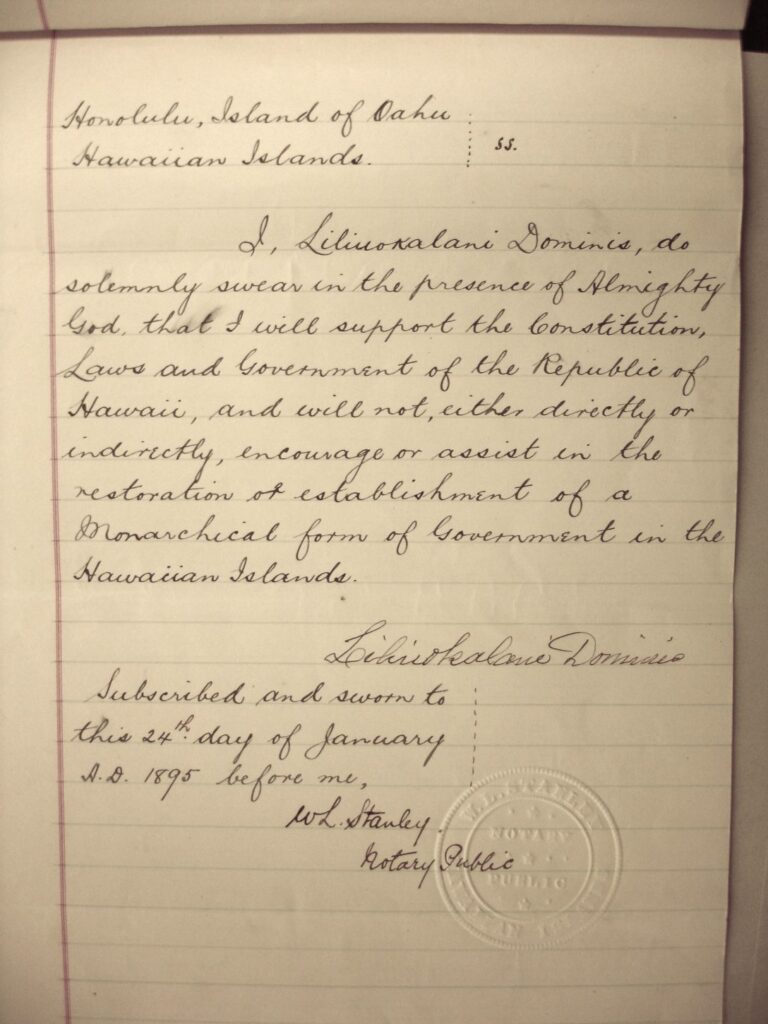 Honolulu, Island of Oahu
Hawaiian Islands.
ss.
I, Liliuokalani Dominis, do
solemnly swear in the presence of Almighty
God, that I will support the Constitution,
Laws and Government of the Republic of
Hawaii, and will not, either directly or
indirectly, encourage or assist in the
restoration or establishment of a
Monarchical form of Government in the
Hawaiian Islands.
Liliuokalani Dominis
Subscribed and sworn to
this 24th. day of January
A.D. 1895 before me,
W L. Stanley.
Notary Public
W. L. STANLEY
NOTARY
PUBLIC